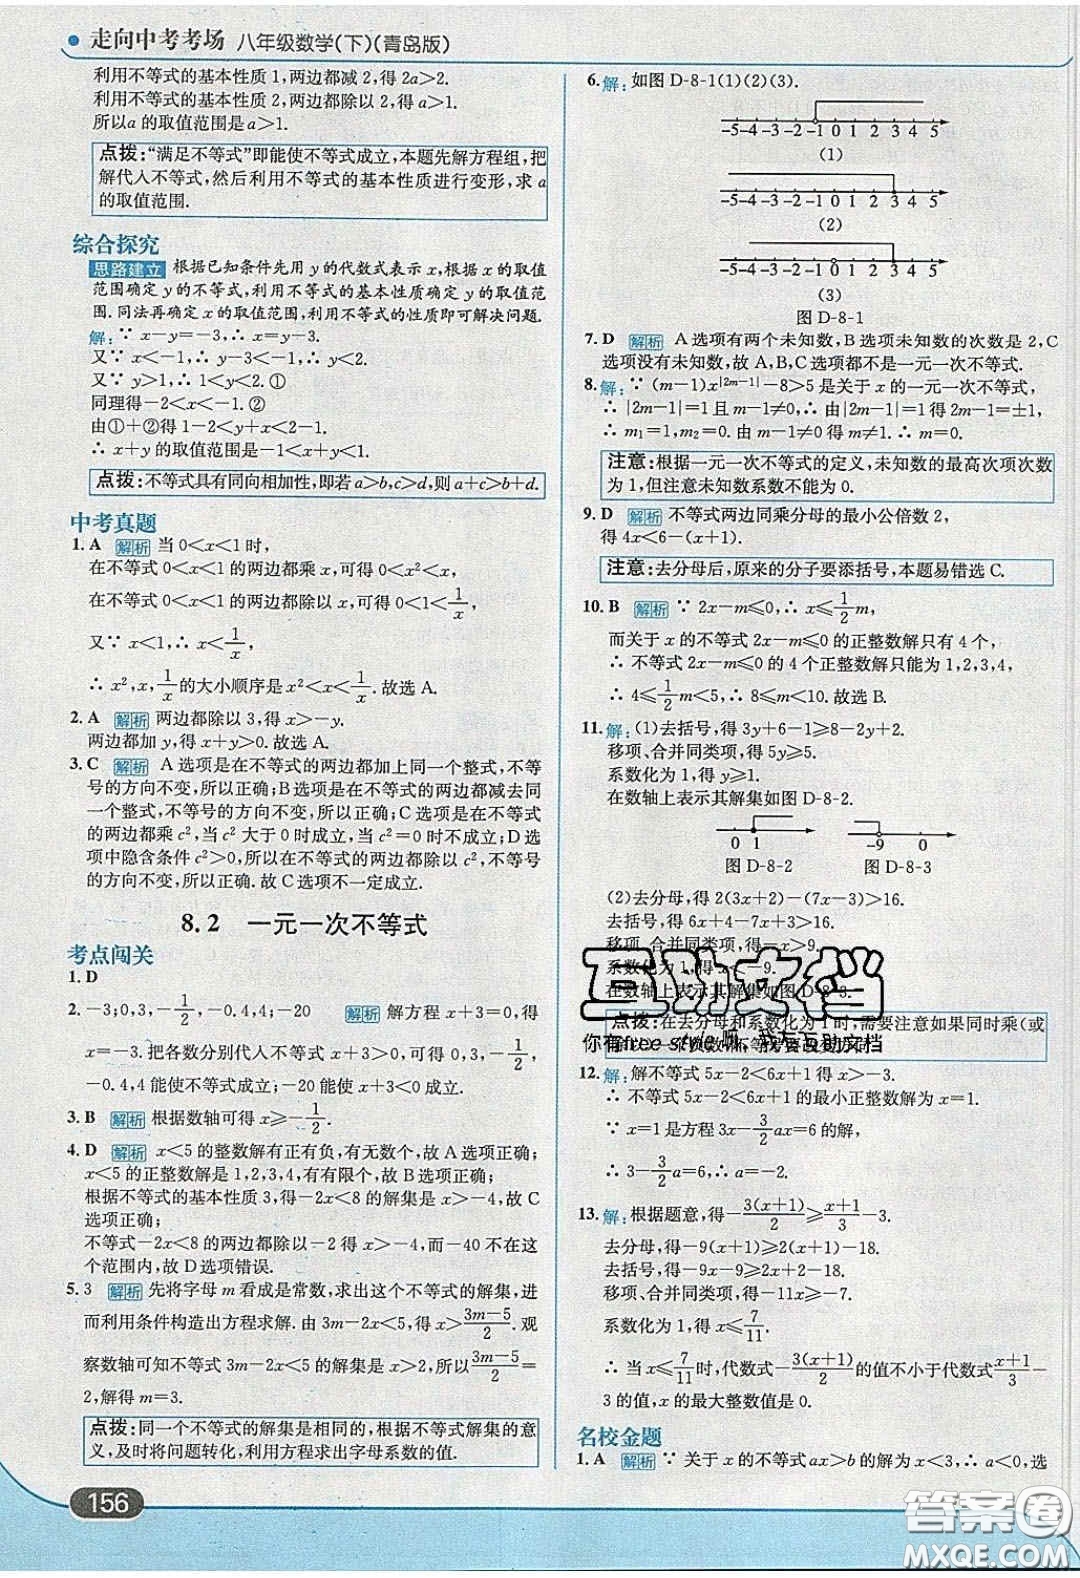 走向中考考场 八年级数学(下)(青岛版)
利用不等式的基本性质1,两边都减2,得2a>2.
利用不等式的基本性质2,两边都除以2,得a>1.
所以a的取值范围是a>1.
点拨:“满足不等式”即能使不等式成立,本题先解方程组,把
解代入不等式,然后利用不等式的基本性质进行变形,求a
的取值范围.
综合探究
思路建立 根据已知条件先用y的代数式表示x,根据x的取值
范围确定y的不等式,利用不等式的基本性质确定y的取值范
围.同法再确定x的取值范围,利用不等式的性质即可解决问题.
解:∵x-y=-3,∴x=y-3.
又∵x<-1,∴y-3<-1,∴y<2.
又∵y>1,∴1<y<2.①
同理得-2<x<-1.②
由①+②得1-2<y+x<2-1.
∴x+y的取值范围是-1<x+y<1.
点拨:不等式具有同向相加性,即若a>b,c>d,则a+c>b+d.
中考真题
1.A 解析 当0<x<1时,
在不等式0<x<1的两边都乘x,可得0<x²<x,
在不等式0<x<1的两边都除以x,可得0<1<1/x,
又∵x<1,∴x<1/x,
∴x²,x,1/x的大小顺序是x²<x<1/x.故选A.
2.A 解析 两边都除以3,得x>-y.
两边都加y,得x+y>0.故选A.
3.C 解析 A选项是在不等式的两边都加上同一个整式,不等
号的方向不变,所以正确;B选项是在不等式的两边都减去同
一个整式,不等号的方向不变,所以正确;C选项是在不等式
的两边都乘c²,当c²大于0时成立,当c²=0时不成立;D选
项中隐含条件c²>0,所以在不等式的两边都除以c²,不等号
的方向不变,所以正确.故C选项不一定成立.
8.2 一元一次不等式
考点闯关
1.D
2.-3;0,3,-1/2,-0.4,4;-20 解析 解方程x+3=0,得
x=-3.把各数分别代入不等式x+3>0,可得0,3,-1/2,
-0.4,4能使不等式成立;-20能使x+3<0成立.
3.B 解析 根据数轴可得x≥-1/2.
4.D 解析 x<5的整数解有正有负,有无数个,故A选项正确;
x<5的正整数解是1,2,3,4,有有限个,故B选项正确;
根据不等式的基本性质3,得-2x<8的解集是x>-4,故C
选项正确;
不等式-2x<8的两边都除以-2得x>-4,而-40不在这
个范围内,故D选项错误.
5.3 解析 先将字母m看成是常数,求出这个不等式的解集,进
而利用条件构造出方程求解.由3m-2x<5,得x>(3m-5)/2.观
察数轴可知不等式3m-2x<5的解集是x>2,所以(3m-5)/2=
2,解得m=3.
点拨:同一个不等式的解集是相同的,根据不等式解集的意
义,及时将问题转化,利用方程求出字母系数的值.
156
6.解:如图D-8-1(1)(2)(3).
-5-4-3-2-1 0 1 2 3 4 5
(1)
-5-4-3-2-1 0 1 2 3 4 5
(2)
-5-4-3-2-1 0 1 2 3 4 5
(3)
图D-8-1
7.D 解析 A选项有两个未知数,B选项未知数的次数是2,C
选项没有未知数,故A,B,C选项都不是一元一次不等式.
8.解:∵(m-1)x|2m-1|-8>5是关于x的一元一次不等式,
∴|2m-1|=1且m-1≠0,∴由|2m-1|=1得2m-1=±1,
∴m₁=1,m₂=0.由m-1≠0得m≠1.∴m=0.
注意:根据一元一次不等式的定义,未知数的最高次项次数
为1,但注意未知数系数不能为0.
9.D 解析 不等式两边同乘分母的最小公倍数2,
得4x<6-(x+1).
注意:去分母后,原来的分子要添括号,本题易错选C.
10.B 解析 ∵2x-m≤0,∴x≤1/2m,
而关于x的不等式2x-m≤0的正整数解只有4个,
∴不等式2x-m≤0的4个正整数解只能为1,2,3,4,
∴4≤1/2m<5,∴8≤m<10.故选B.
11.解:(1)去括号,得3y+6-1≥8-2y+2.
移项、合并同类项,得5y≥5.
系数化为1,得y≥1.
在数轴上表示其解集如图D-8-2.
0 1 -9 0
图D-8-2 图D-8-3
(2)去分母,得2(3x+2)-(7x-3)>16.
去括号,得6x+4-7x+3>16.
移项、合并同类项,得-x>9.
系数化为1,得x<-9.
在数轴上表示其解集如图D-8-3.
点拨:在去分母和系数化为1时,需要注意如果同时乘(或
互助文档
你有free style吗,我有互助文档
12.解:解不等式5x-2<6x+1得x>-3.
∴不等式5x-2<6x+1的最小正整数解为x=1.
∵x=1是方程3x-3/2ax=6的解,
∴3-3/2a=6,∴a=-2.
13.解:根据题意,得-3(x+1)/2≥(x+1)/3-3.
去分母,得-9(x+1)≥2(x+1)-18.
去括号,得-9x-9≥2x+2-18.
移项、合并同类项,得-11x≥-7.
系数化为1,得x≤7/11.
∴当x≤7/11时,代数式-3(x+1)/2的值不小于代数式(x+1)/3-
3的值,x的最大整数值是0.
名校金题
1.A 解析 ∵关于x的不等式ax>b的解为x<b/a,∴a<0,选
答案圈
MXQE.COM